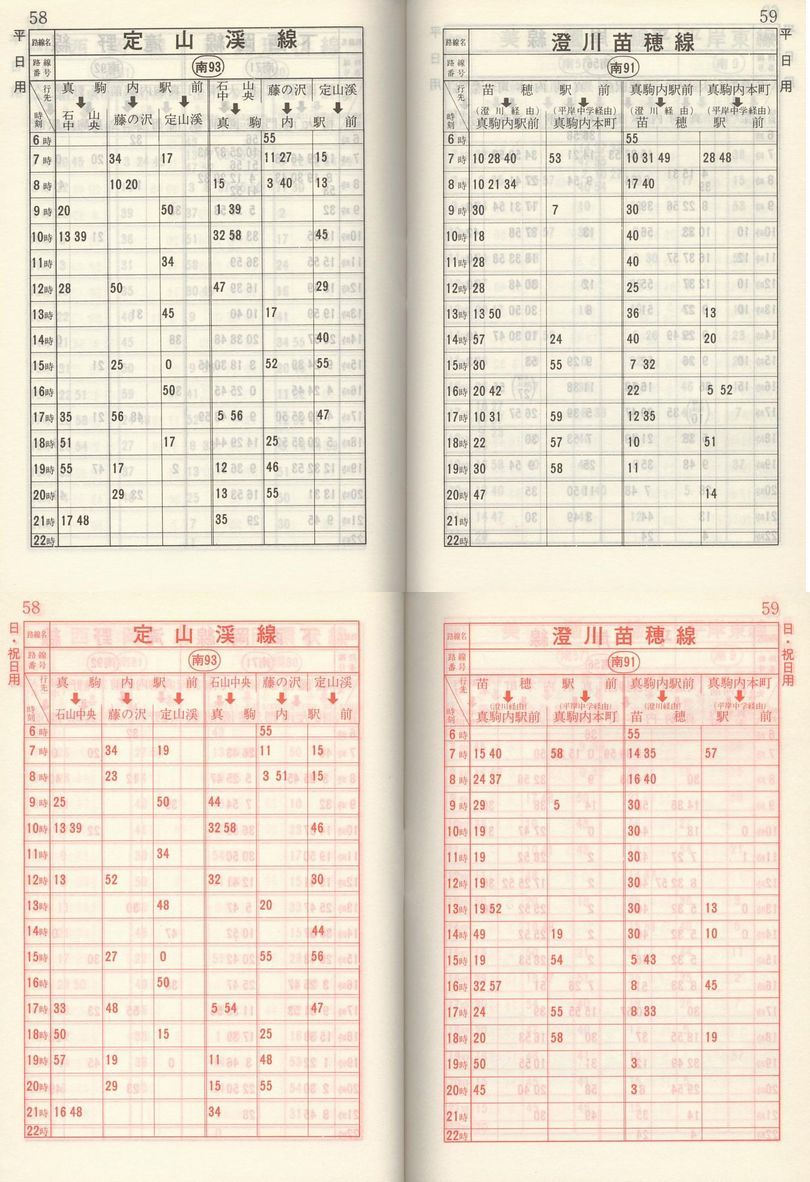 58
平日用
路線名 定山渓線
路線番号 南93
行先 時刻
真駒内駅前 石山中央 藤の沢 定山渓
石山中央 藤の沢 定山渓 真駒内駅前
6時 55
7時 34 17 11 27 15
8時 10 20 15 3 40 13
9時 20 50 1 39
10時 13 39 32 58 45
11時 34
12時 28 50 47 29
13時 45 17
14時 40
15時 25 0 52 55
16時 50
17時 35 56 5 56 47
18時 51 17 25
19時 55 17 12 46
20時 29 13 55
21時 17 48 35
22時
59
平日用
路線名 澄川苗穂線
路線番号 南91
行先 時刻
苗穂駅前 真駒内駅前 真駒内本町
(澄川経由) (平岸中学経由) (澄川経由) (平岸中学経由)
真駒内駅前 真駒内本町 苗穂駅前
6時 55
7時 10 28 40 53 10 31 49 28 48
8時 10 21 34 17 40
9時 30 7 30
10時 18 40
11時 28 40
12時 28 25
13時 13 50 36 13
14時 57 24 40 20
15時 30 55 7 32
16時 20 42 22 5 52
17時 10 31 59 12 35
18時 22 57 10 51
19時 30 58 11
20時 47 14
21時
22時
58
日・祝日用
路線名 定山渓線
路線番号 南93
行先 時刻
真駒内駅前 石山中央 藤の沢 定山渓
石山中央 藤の沢 定山渓 真駒内駅前
6時 55
7時 34 19 11 15
8時 23 3 51 15
9時 25 50 44
10時 13 39 32 58 46
11時 34
12時 13 52 32 30
13時 48 20
14時 44
15時 27 0 55 56
16時 50
17時 33 48 5 54 47
18時 50 15 25
19時 57 19 11 48
20時 29 15 55
21時 16 48 34
22時
59
日・祝日用
路線名 澄川苗穂線
路線番号 南91
行先 時刻
苗穂駅前 真駒内駅前 真駒内本町
(澄川経由) (平岸中学経由) (澄川経由) (平岸中学経由)
真駒内駅前 真駒内本町 苗穂駅前
6時 55
7時 15 40 58 14 35 57
8時 24 37 16 40
9時 29 5 30
10時 19 30
11時 19 30
12時 19 30
13時 19 52 30 13
14時 49 19 30 10
15時 19 54 5 43
16時 32 57 8 45
17時 24 55 8 33
18時 20 58 8 19
19時 50 3
20時 45 3
21時
22時